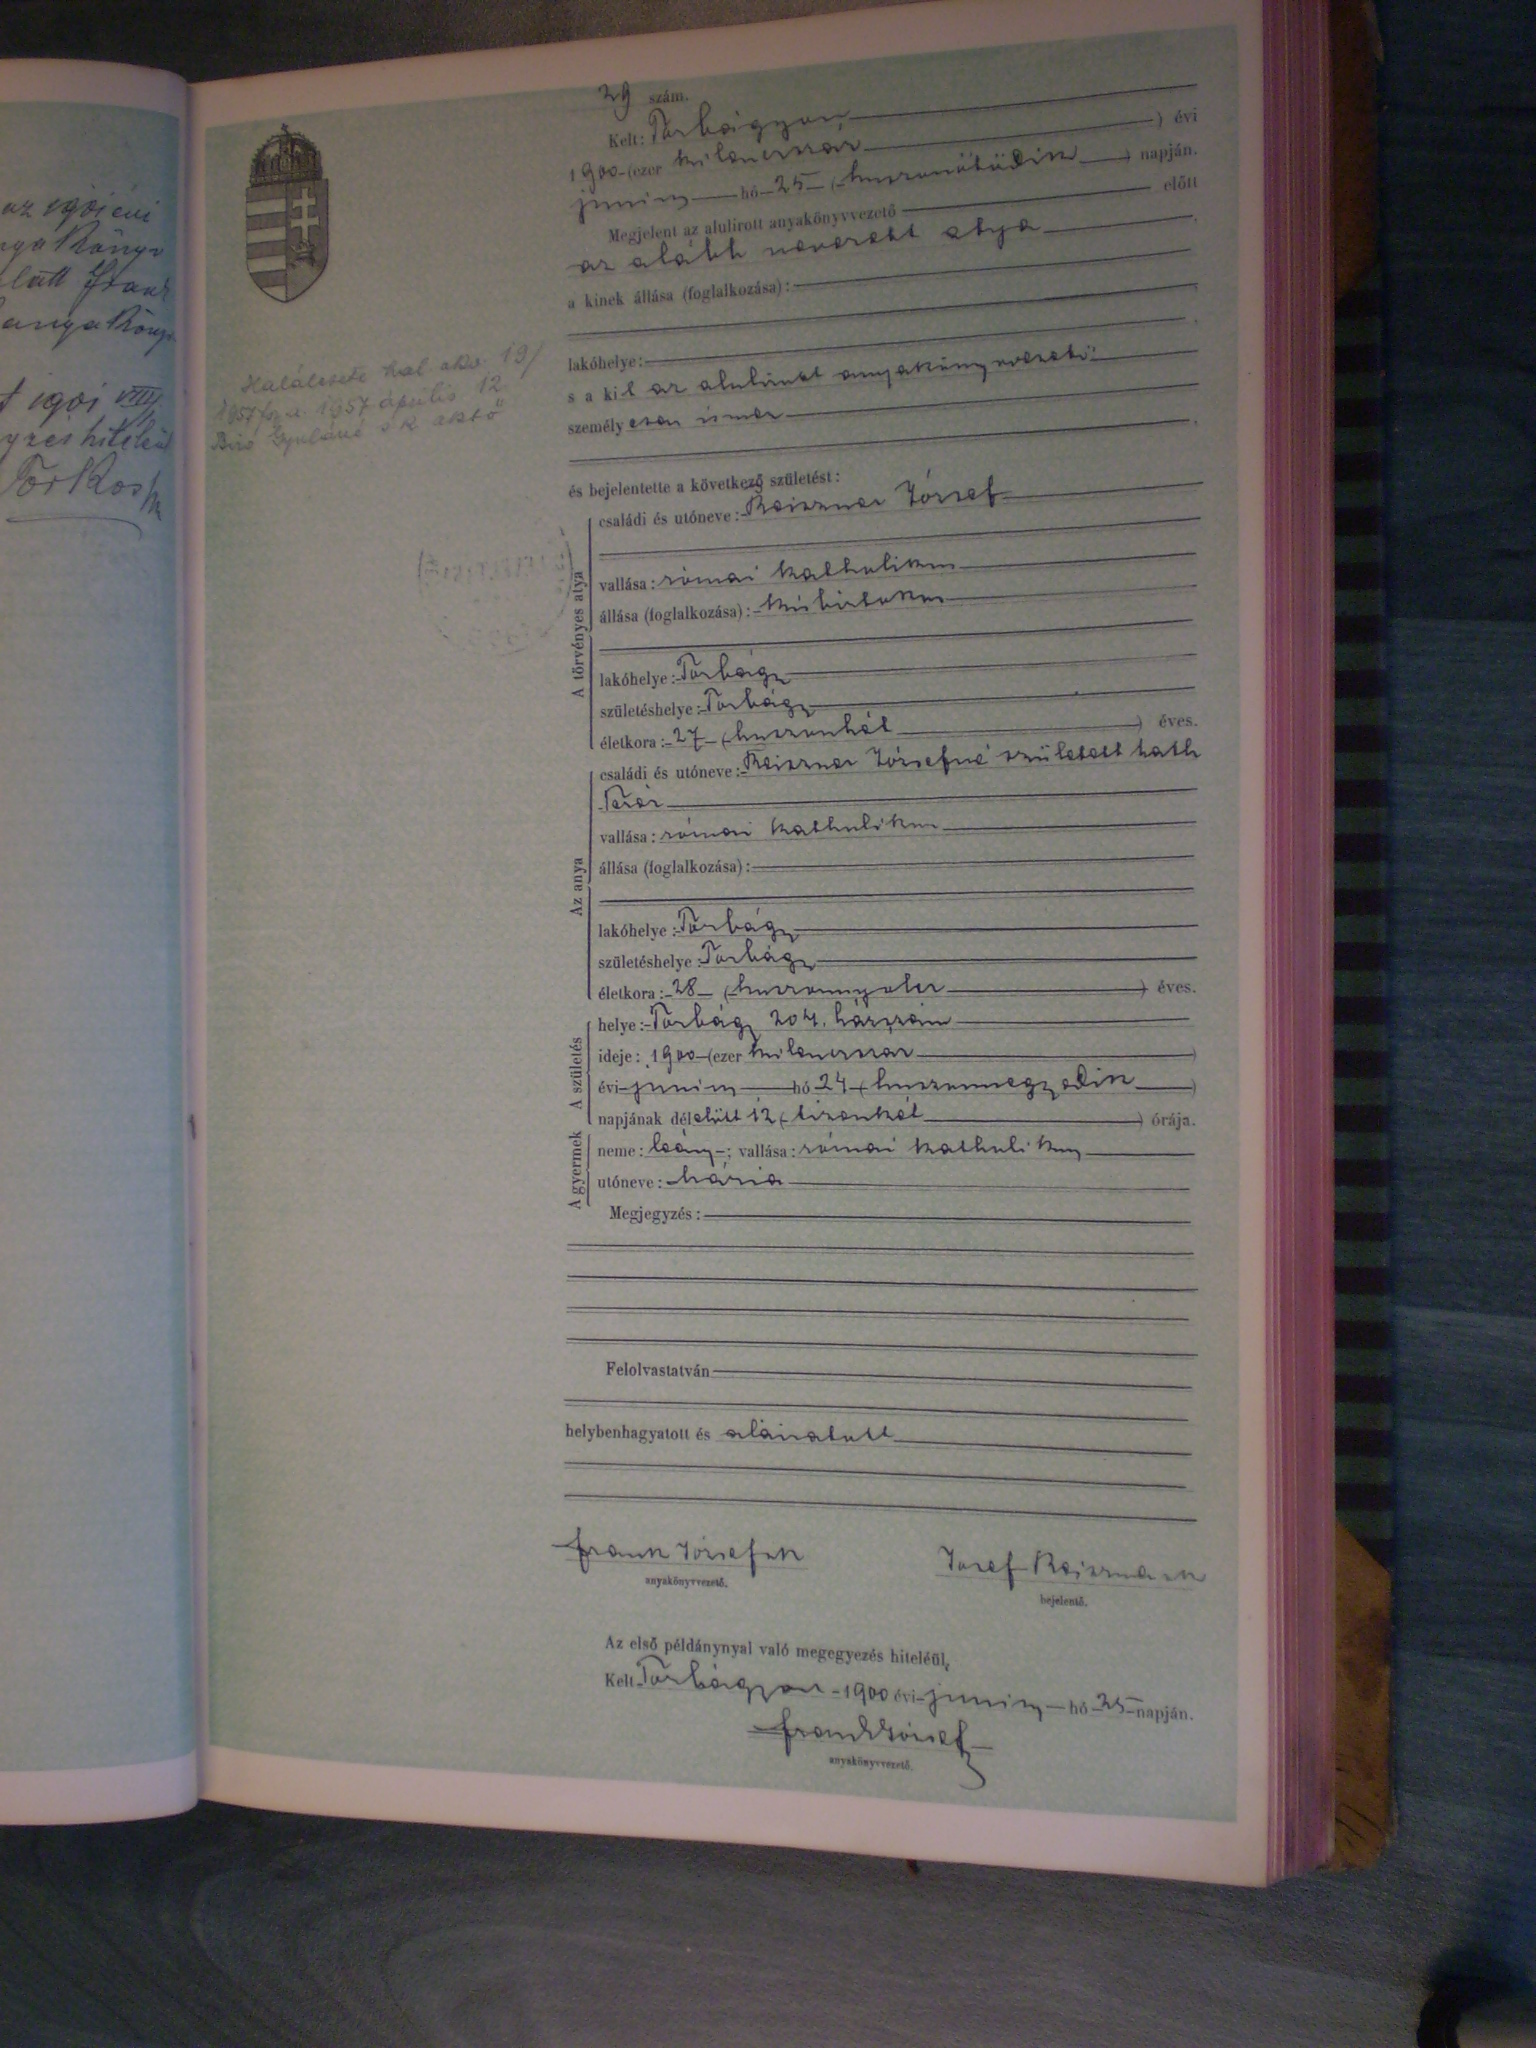 az 1901 évi
anya Köny
29 szám.
Kelt: Torbágyon ) évi
1900 (ezer kilenczszáz
junius hó 25 (huszonötödik ) napján.
Megjelent az alulirott anyakönyvvezető előtt
az alább nevezett atya ,
a kinek állása (foglalkozása):
lakóhelye:
s a kit az alulirott anyakönyvvezető
személyesen ismer
és bejelentette a következő születést:
A törvényes atya
családi és utóneve: Reiszner József
vallása: római katholikus
állása (foglalkozása): kisbirtokos
lakóhelye: Torbágy
születéshelye: Torbágy
életkora: 27 (huszonhét ) éves.
Az anya
családi és utóneve: Reiszner Józsefné született
Teréz
vallása: római katholikus
állása (foglalkozása):
lakóhelye: Torbágy
születéshelye: Torbágy
életkora: 28 (huszonnyolcz ) éves.
A születés
helye: Torbágy 204. házszám
ideje: 1900 (ezer kilenczszáz )
évi junius hó 24 (huszonnegyedik )
napjának délelőtt 12 (tizenkét ) órája.
A gyermek
neme: leány; vallása: római katholikus
utóneve: Mária
Megjegyzés:
Felolvastatván
helybenhagyatott és aláiratott
Frank József sk
anyakönyvvezető.
Josef Reiszner sk
bejelentő.
Az első példánynyal való megegyezés hiteléül,
Kelt Torbágyon 1900 évi junius hó 25 napján.
Frank József
anyakönyvvezető.
Halálesete hal akv. 19/
1957 fsz. a. 1957 április 12
Biró Gyuláné s k